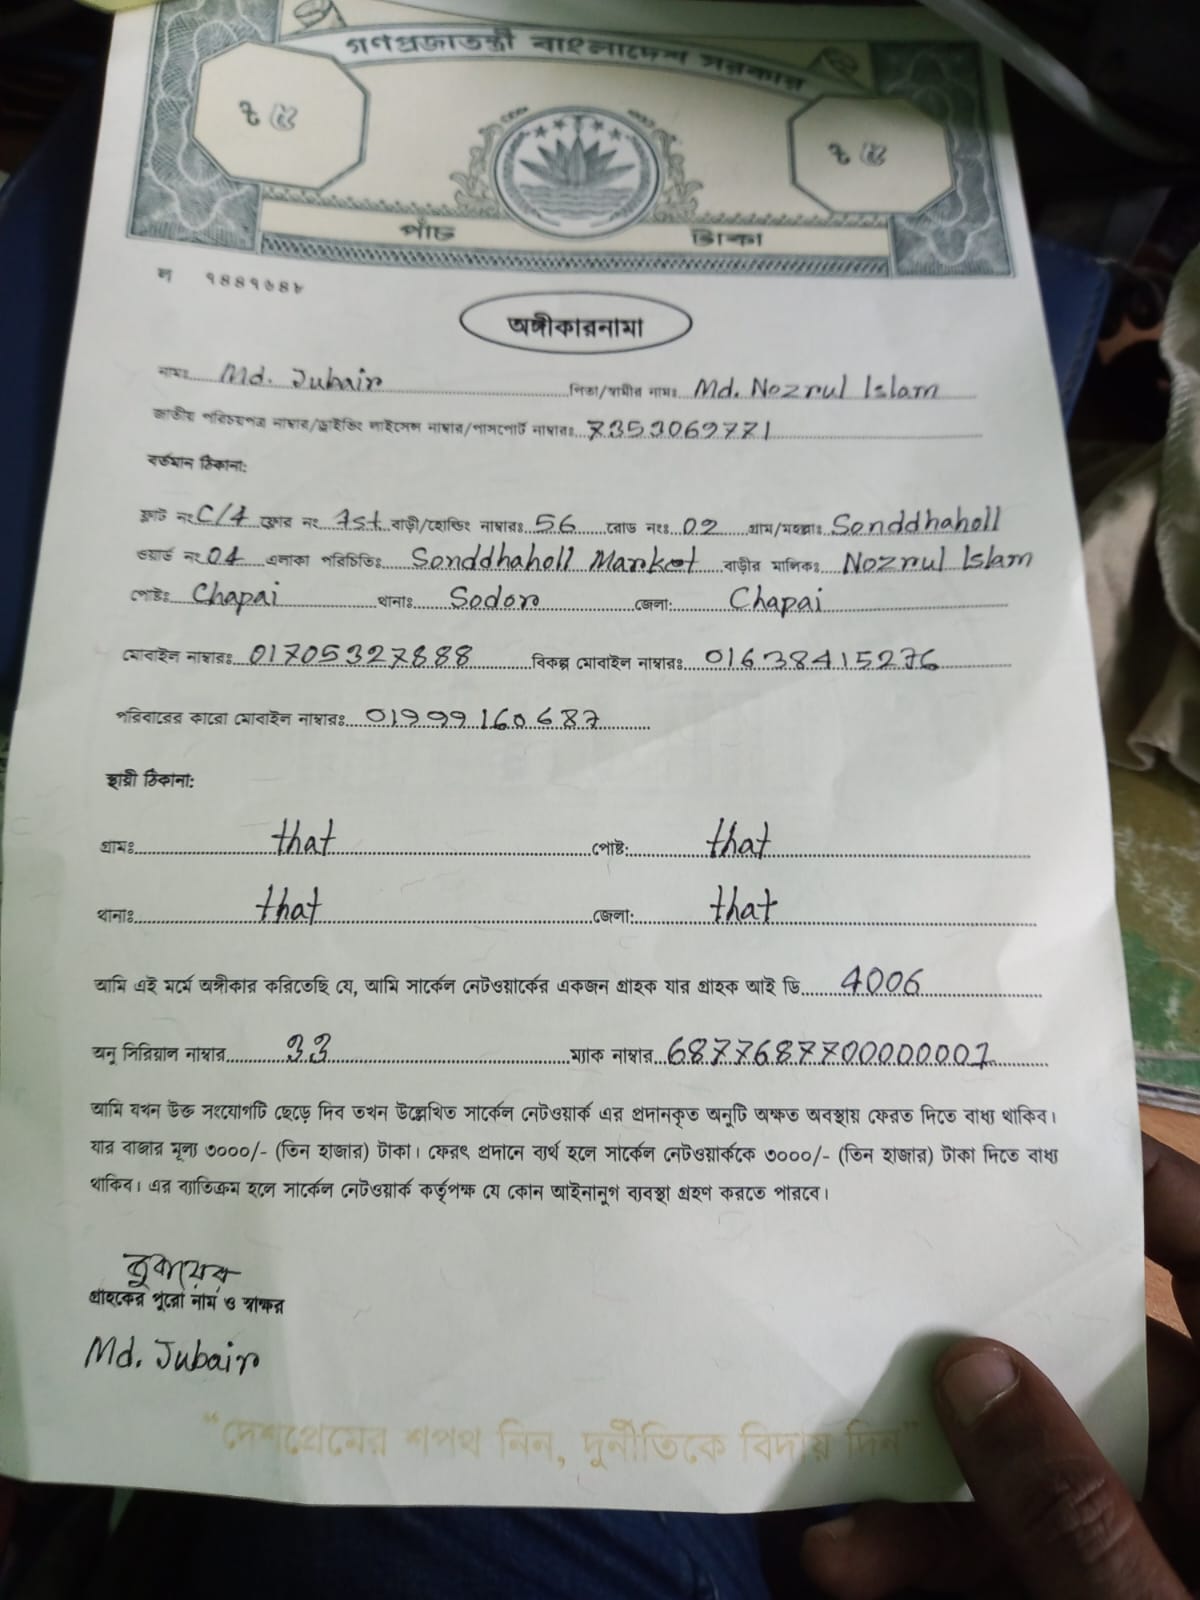 গণপ্রজাতন্ত্রী বাংলাদেশ সরকার
৳ ৫ ৳ ৫
পাঁচ টাকা
ল ৭৪৪৭৬৪৮
অঙ্গীকারনামা
নামঃ Md. Jubair পিতা/স্বামীর নামঃ Md. Nozrul Islam
জাতীয় পরিচয়পত্র নাম্বার/ড্রাইভিং লাইসেন্স নাম্বার/পাসপোর্ট নাম্বারঃ 7353069771
বর্তমান ঠিকানা:
ফ্লাট নং C/4 ফ্লোর নং 1st বাড়ী/হোল্ডিং নাম্বারঃ 56 রোড নংঃ 02 গ্রাম/মহল্লাঃ Sonddhaholl
ওয়ার্ড নং 04 এলাকা পরিচিতিঃ Sonddhaholl Market বাড়ীর মালিকঃ Nozrul Islam
পোষ্টঃ Chapai থানাঃ Sodor জেলা: Chapai
মোবাইল নাম্বারঃ 01705327888 বিকল্প মোবাইল নাম্বারঃ 01638415276
পরিবারের কারো মোবাইল নাম্বারঃ 01999160687
স্থায়ী ঠিকানা:
গ্রামঃ that পোষ্ট: that
থানাঃ that জেলা: that
আমি এই মর্মে অঙ্গীকার করিতেছি যে, আমি সার্কেল নেটওয়ার্কের একজন গ্রাহক যার গ্রাহক আই ডি 4006
অনু সিরিয়াল নাম্বার 33 ম্যাক নাম্বার 6877687700000001
আমি যখন উক্ত সংযোগটি ছেড়ে দিব তখন উল্লেখিত সার্কেল নেটওয়ার্ক এর প্রদানকৃত অনুটি অক্ষত অবস্থায় ফেরত দিতে বাধ্য থাকিব।
যার বাজার মূল্য ৩০০০/- (তিন হাজার) টাকা। ফেরৎ প্রদানে ব্যর্থ হলে সার্কেল নেটওয়ার্ককে ৩০০০/- (তিন হাজার) টাকা দিতে বাধ্য
থাকিব। এর ব্যতিক্রম হলে সার্কেল নেটওয়ার্ক কর্তৃপক্ষ যে কোন আইনানুগ ব্যবস্থা গ্রহণ করতে পারবে।
জুবায়ের
গ্রাহকের পুরো নাম ও স্বাক্ষর
Md. Jubair
“দেশপ্রেমের শপথ নিন, দুর্নীতিকে বিদায় দিন”